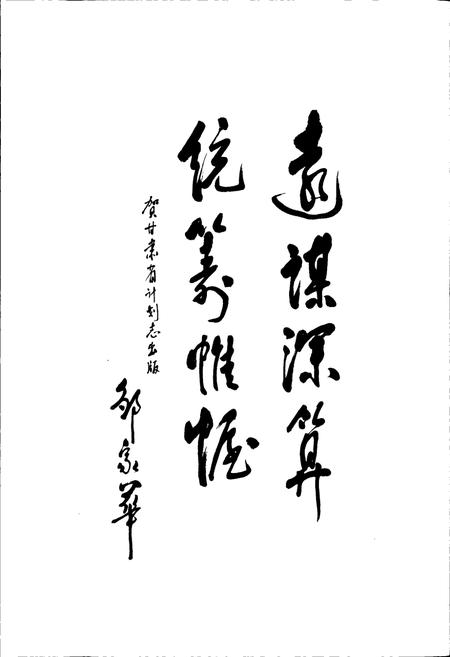 遠谋深算
统筹帷幄
贺甘肃省计划志出版
邹家华